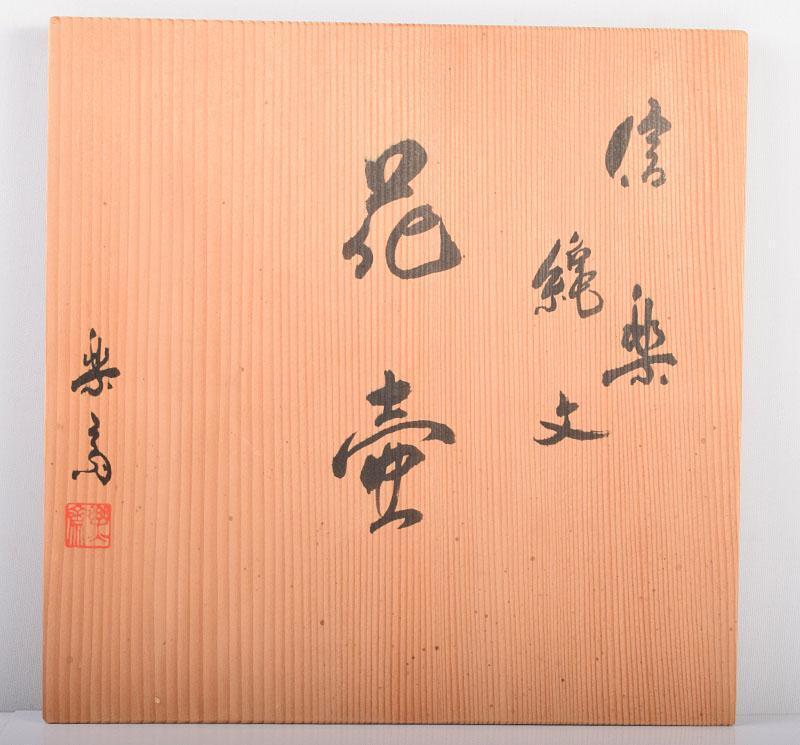 信楽
縄文
花壷
楽斎